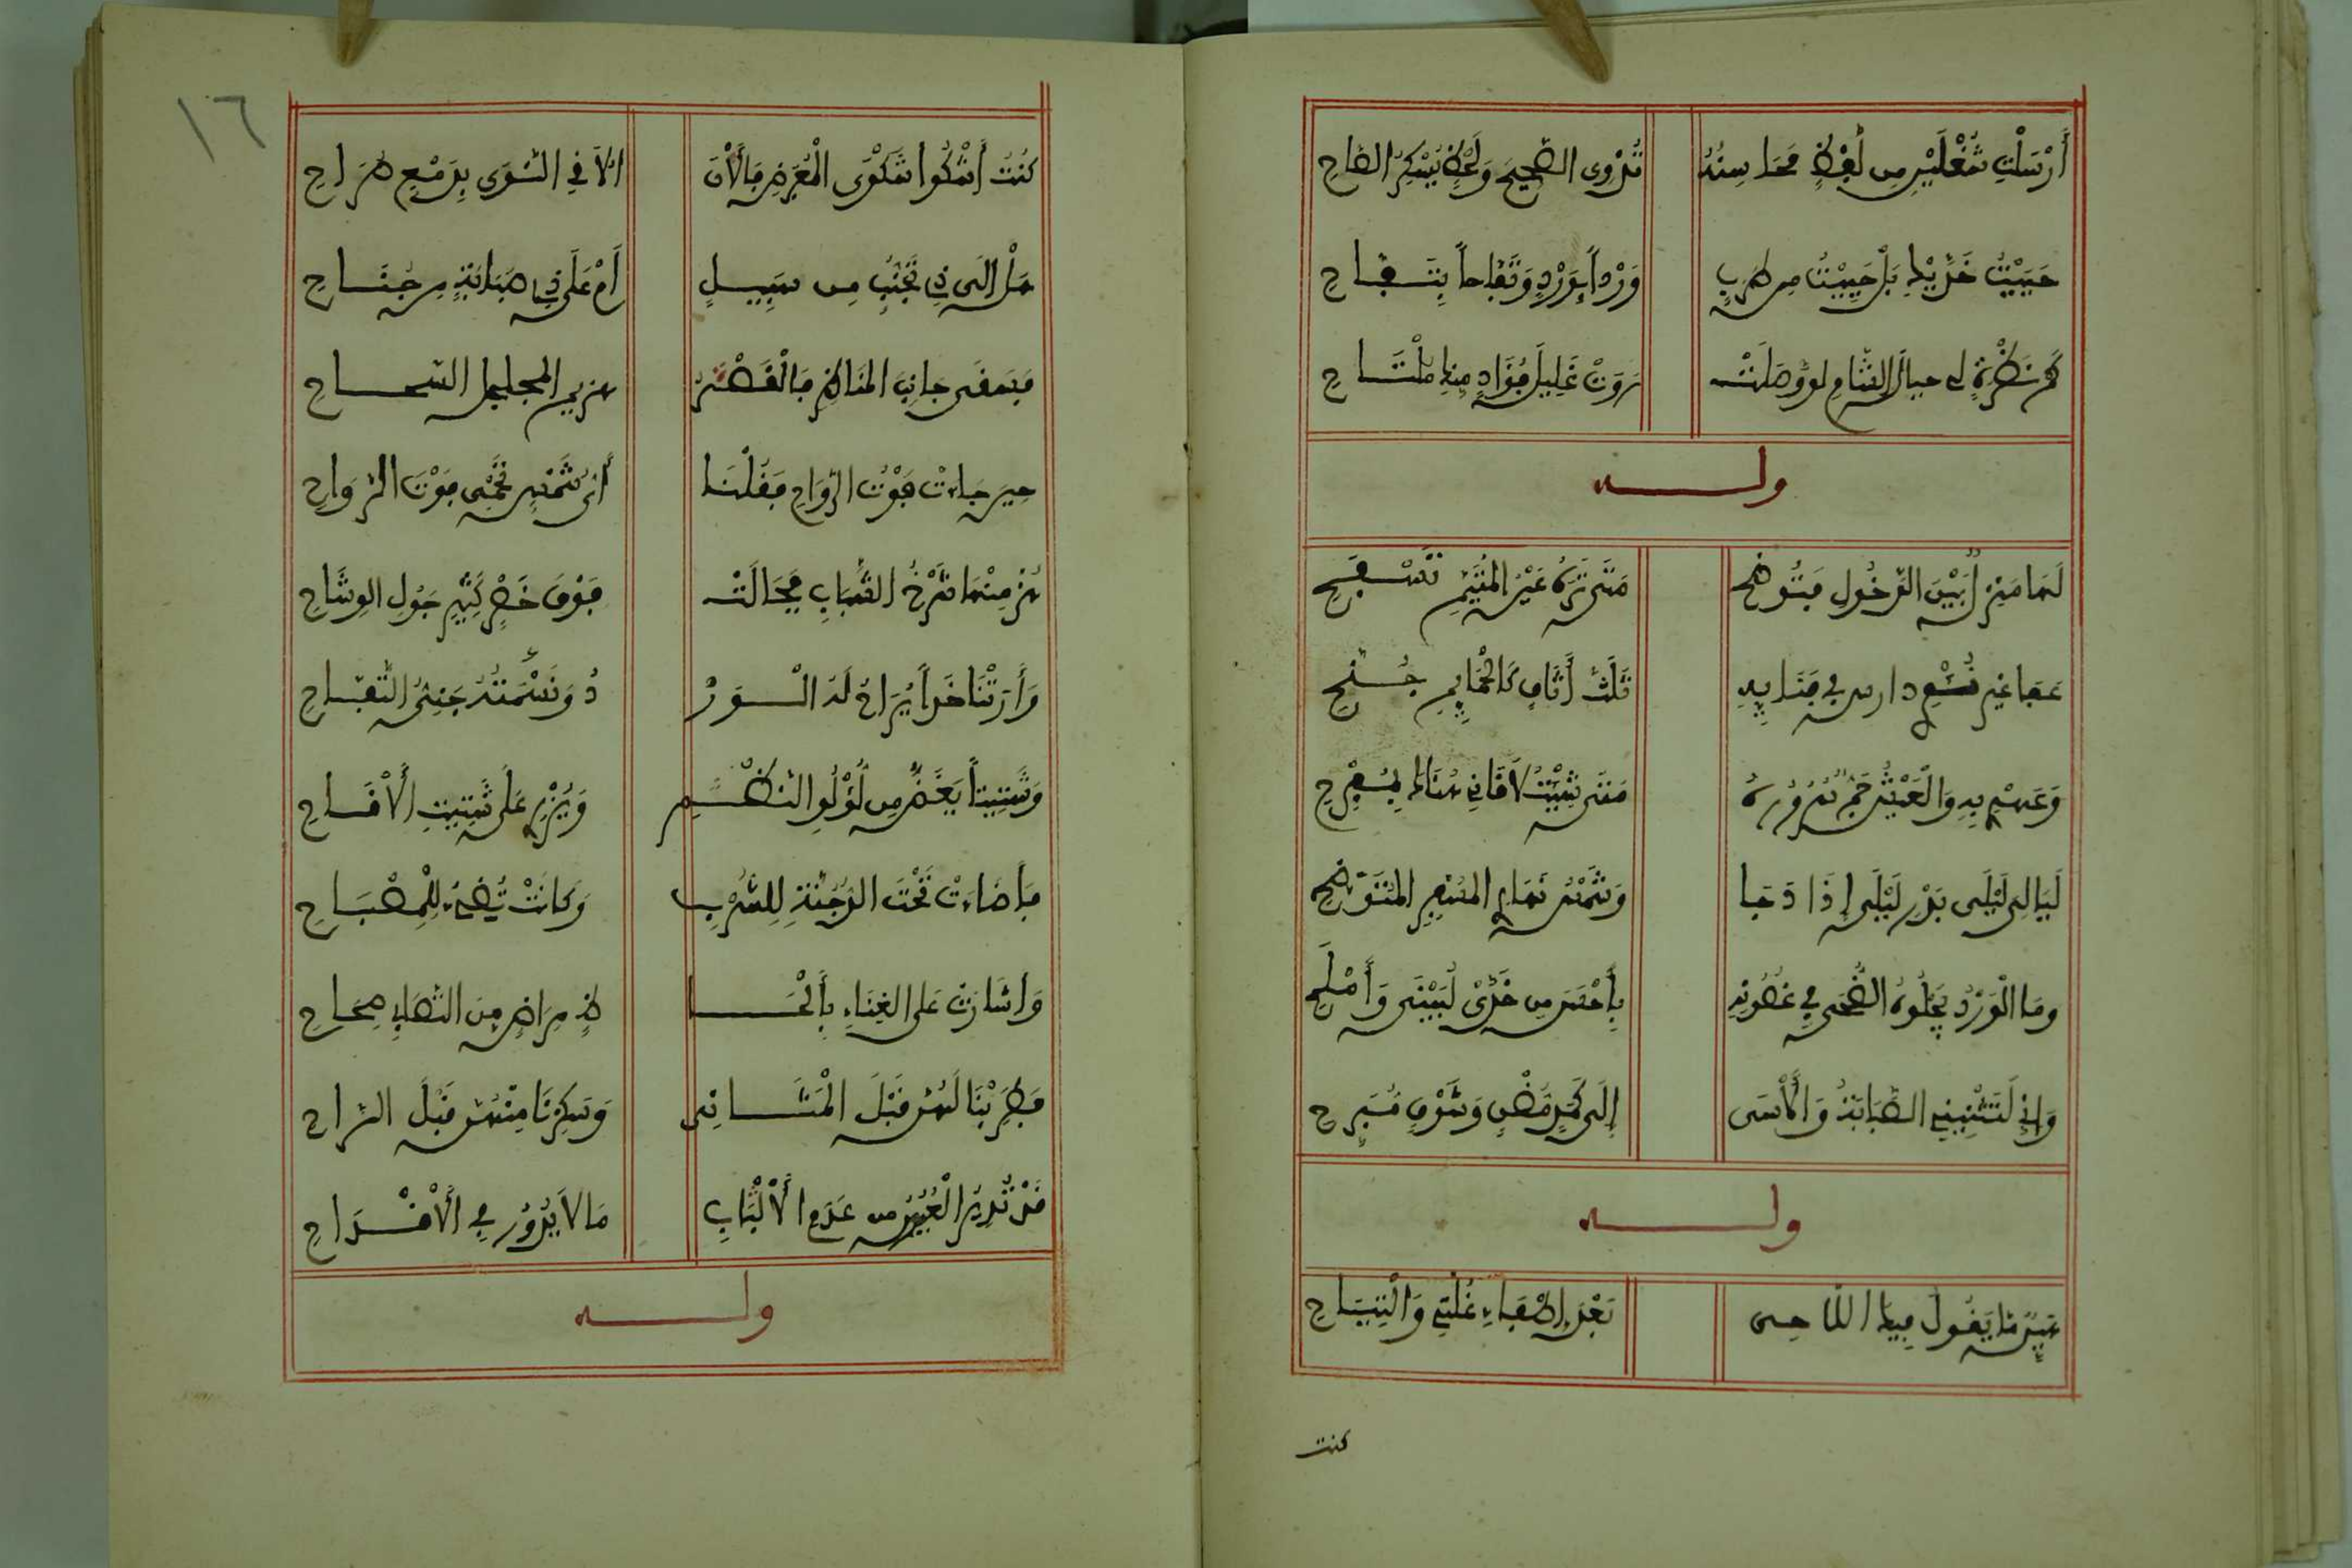 أَرْسَلْتِ شُغْلَيْنِ مِن لَفْظٍ مَحَاسِنُهُ تُرْوِى الصَّحِيحَ وَلَحْظٍ يُسْكِرُ الصَّاحِ
حَيَيْتُ خَدَّيْكِ بَلْ حَيِيْتُ مِن طَرَبٍ وَرْداً بِوَرْدٍ وَتُفَّاحاً بِتُفَّاحِ
كَمْ نَظْرَةٍ لِى حيالَ الشَّامِ لَو وَصَلَتْ رَوَتْ غَلِيلَ فُؤَادٍ مِنكِ مُلْتَاحِ
ولـــــه
لَهَا مَنْزِلٌ بَيْنَ الدَّخُولِ فَتُوضِحِ مَتَى تَرَهُ عَيْنُ المُتَيَّمِ تَسْفَحِ
عَفَا غير نُؤْىٍ دارس في فِنَائِهِ ثَلَثُ أَثَافٍ كَالْحَمَائِمِ جُنَّحِ
وَعَهْدِى بِهِ وَالْعَيْشُ جَمٌّ سُرُورُهُ مَتَى شِيْتُ لاَقَانِى هُنَاكَ بِمُفْرِحِ
لَيَالِىَ لَيْلَى بَدْرُ لَيْلَى إِذَا دَجَا وَشَمْسُ نَهَارِ المُسْفِرِ المُتَوَضِّحِ
وَمَا الْوَرْدُ يَجْلُوهُ الضُّحَى فِى غُصُونِهِ بِأَحْسَنَ مِن خَدَّىْ لُبَيْنَى وَأَمْلَحِ
وَإِنِّى لَتَثْنِينِى الصَّبَابَةُ وَالأَسَى إِلَى كَمَدٍ مُضْنٍ وَشَوْقٍ مُبَرِّحِ
ولـــــه
بَيْنَ مَا يَقُولُ فِيكِ اللاَّحِى بَعْدَ إِطْفَاءِ غُلَّتِى وَالْتِيَاحِ
كنت
١٦
كُنْتُ أَشْكُوا شَكْوَى الْمُعَرِّضِ فَالآنَ الاَقِى النَّوَى بِدَمْعٍ صُرَاحِ
هَلْ إِلَى ذِى تَجَنُّبٍ مِن سَبِيلٍ أَمْ عَلَى ذِى صَبَابَةٍ مِن جُنَاحِ
فَسَقَى جَانِبَ المَنَاظِرِ فَالْقَصْرَ هَزِيمُ المجلجل السَّحَّاحِ
حِينَ جَاءَتْ فَوْتَ الرَّوَاحِ فَقُلْنَا أَىُّ شَمْسٍ تَجِىُ فَوْتَ الرَّوَاحِ
هَزَّ مِنْهَا شَرْخُ الشَّبَابِ فَجَالَتْ فَوْقَ خَصْرٍ كَثِيرِ جَوْلِ الوِشَاحِ
وَأَرَتْنَا خَدّاً يُرَاحُ لَهُ الْوَرْ دُ وَتَشْتَمُّهُ جَنِىُّ التُّفَّاحِ
وَشَتِيتاً يَغُضُّ مِن لُؤْلُؤِ النَّظْمِ وَيُزْرِى عَلَى شَتِيتِ الأَقَاحِ
فَأَضَاءَتْ تَحْتَ الدُّجُنَّةِ لِلشَّرْبِ وَكَادَتْ تُضِىءُ لِلْمِصْبَاحِ
وَاشَارَتْ عَلَى الغِنَاءِ بِأَلْحَا ظٍ مِرَاضٍ مِنَ التَّصَابِى صِحَاحِ
فَطَرِبْنَا لَهُنَّ قَبْلَ الْمَثَانِى وَسَكِرْنَا مِنْهُنَّ قَبْلَ الرَّاحِ
قَدْ تُدِيرُ الْعُيُونُ مِن عَدَمِ الأَلْبَابِ مَا لاَ يَدُورُ فِى الأَقْدَاحِ
ولـــــه